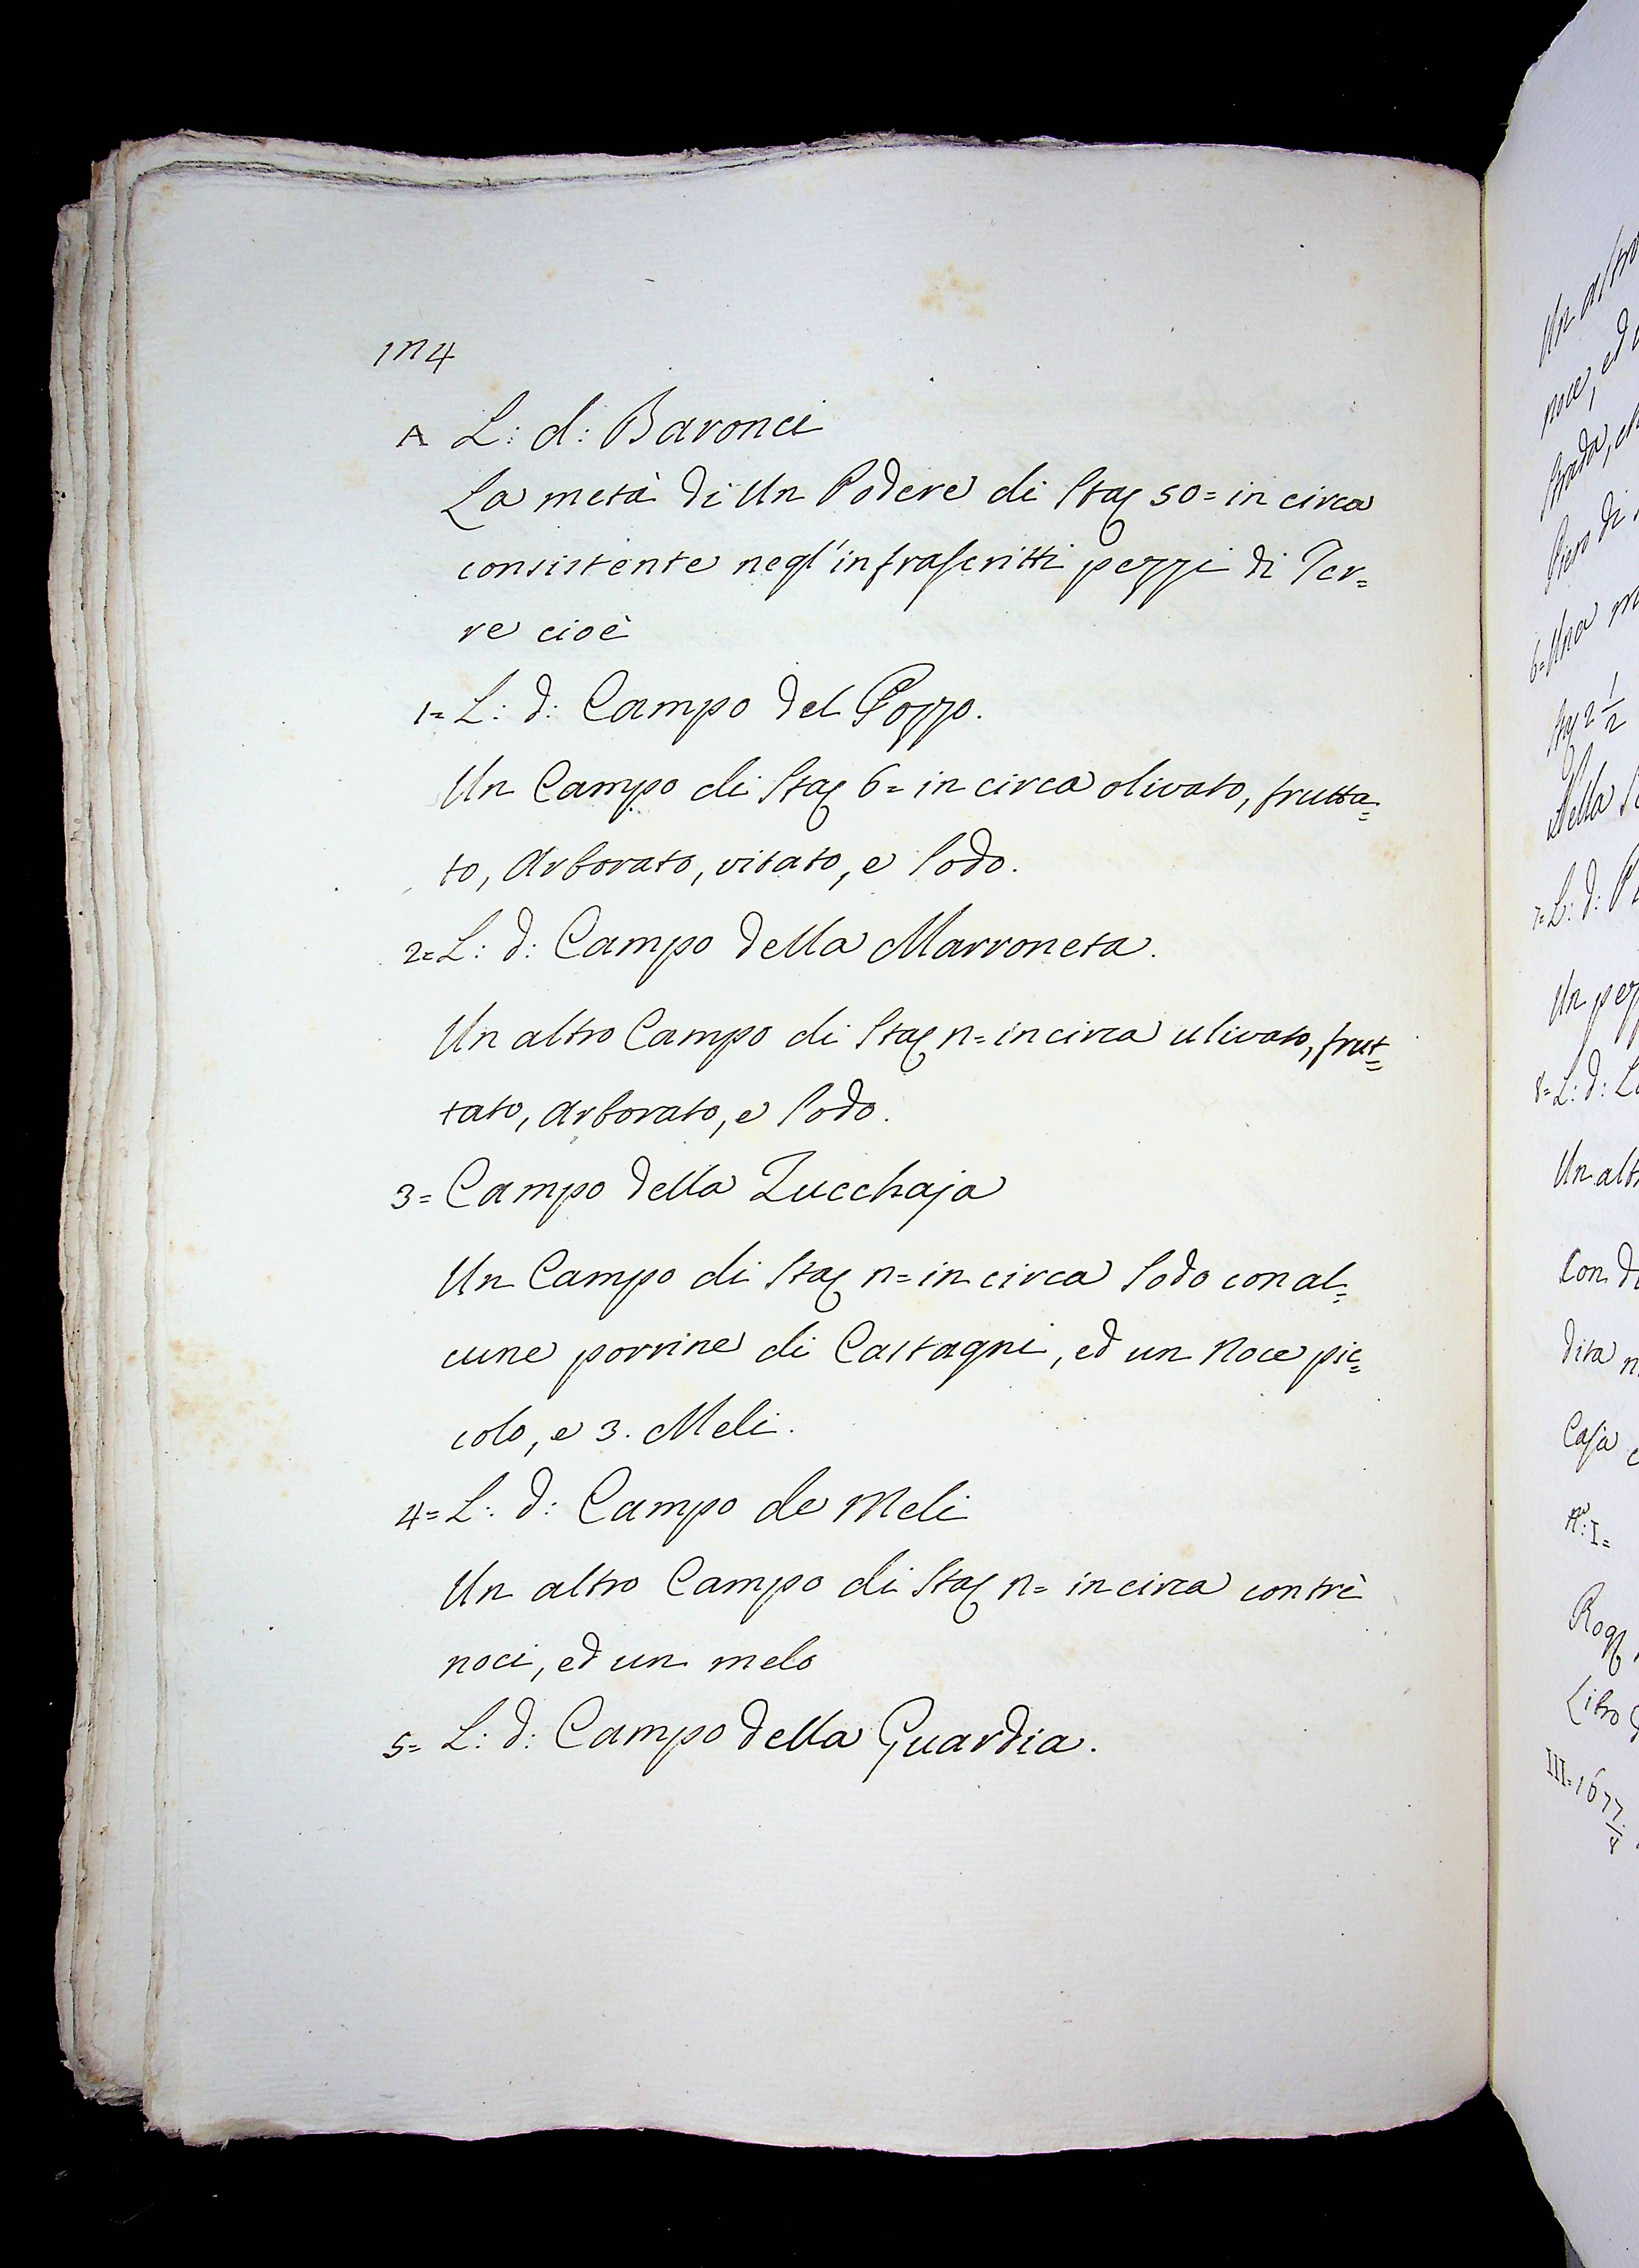 124
A L: d: Baronci
La metà di Un Podere di Staę 50= in circa
consistente negl'infrascritti pezzi di Ter=
re cioè
1= L: d: Campo del Pozzo.
Un Campo di Staę 6= in circa olivato, frutta=
to, Arborato, vitato, e Sodo.
2= L: d: Campo della Marroneta.
Un altro Campo di Staę 2= in circa ulivato, frut=
tato, Arborato, e Sodo.
3= Campo della Zucchaja
Un Campo di Staę 2= in circa Sodo con al=
cune porrine di Castagni, ed un Noce pic=
colo, e 3. Meli.
4= L: d: Campo de Meli
Un altro Campo di Staę 2= in circa con trè
noci, ed un melo
5= L: d: Campo della Guardia.
Un altro
noce, ed
Strada,
di
6= Una
Staę 2 1/2
della
7= L: d:
Un
8= L: d:
Un
Con
dita
Casa
Nº: I=
Rogę
Libro
III= 1677/8